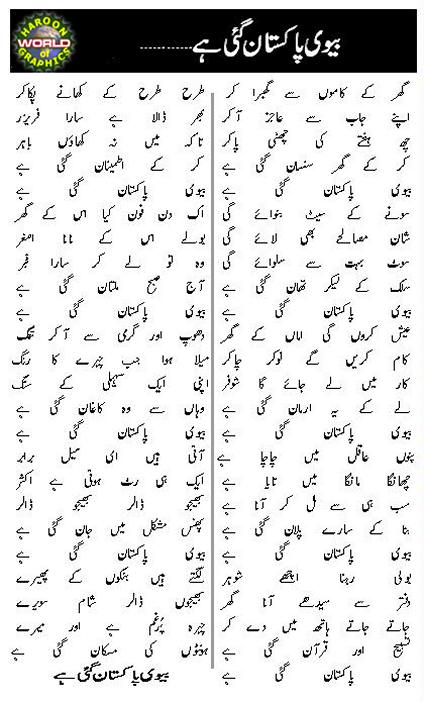 HAROON
WORLD
of
GRAPHICS
بیوی پاکستان گئی ہے..........
گھر کے کاموں سے گھبرا کر
اپنے جاب سے عاجز آ کر
چھ ہفتے کی چھٹی پا کر
کر کے گھر سنسان گئی ہے
بیوی پاکستان گئی ہے
سونے کے سیٹ بنوائے گی
شان مصالحے بھی لائے گی
سوٹ بہت سے سلوائے گی
سلک کے لیکر تھان گئی ہے
بیوی پاکستان گئی ہے
عیش کروں گی اماں کے گھر
کام کریں گے نوکر چاکر
کار میں لے جائے گا شوفر
لے کے یہ ارمان گئی ہے
بیوی پاکستان گئی ہے
بنوں عاقل میں چاچا ہے
چھانگا مانگا میں تایا ہے
سب ہی سے مل کر آنا ہے
بنا کے سارے پلان گئی ہے
بیوی پاکستان گئی ہے
بولی رہنا اچھے شوہر
دفتر سے سیدھے آنا گھر
جاتے جاتے ہاتھ میں دے کر
تسبیح اور قرآن گئی ہے
بیوی پاکستان گئی ہے
طرح طرح کے کھانے پکا کر
بھر ڈالا ہے سارا فریزر
تاکہ میں نہ کھاؤں باہر
کر کے اطمینان گئی ہے
بیوی پاکستان گئی ہے
اک دن فون کیا اس کے گھر
بولے اس کے نانا اصغر
وہ تو لے کر سارا
آج صبح ملتان گئی ہے
بیوی پاکستان گئی ہے
دھوپ اور گرمی سے آ کر تنگ
میلا ہوا جب چہرے کا رنگ
اپنی ایک سہیلی کے سنگ
وہاں سے وہ کاغان گئی ہے
بیوی پاکستان گئی ہے
آتی ہیں ای میل برابر
ایک ہی رٹ ہوتی ہے اکثر
بھیجو ڈالر بھیجو ڈالر
پھنس مشکل میں جان گئی ہے
بیوی پاکستان گئی ہے
لگتے ہیں بنکوں کے پھیرے
بھیجوں ڈالر شام سویرے
چہرہ پُرغم ہے اور میرے
ہونٹوں کی مسکان گئی ہے
بیوی پاکستان گئی ہے